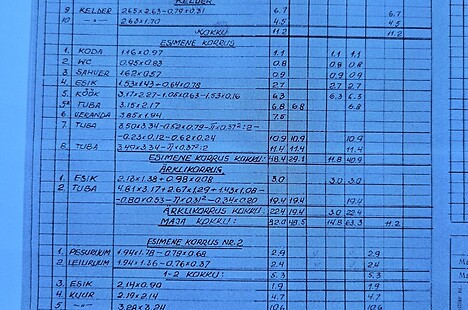 KELDER
9 KELDER 2.65×2.63-0.79×0.31 6.7 6.7
10 -"- 2.63×1.70 4.5 4.5
KOKKU 11.2 11.2
ESIMENE KORRUS
1. KODA 1.16×0.97 1.1 1.1 1.1
2. WC 0.95×0.83 0.8 0.8 0.8
3. SAHVER 1.62×0.57 0.9 0.9 0.9
4. ESIK 1.53×1.43+0.64×0.78 2.7 2.7 2.7
5. KÖÖK 3.17×2.27-1.05×0.63-1.53×0.16 6.3 6.3 6.3
5ª TUBA 3.15×2.17 6.8 6.8 6.8
6 VERANDA 3.85×1.94 7.5
7 TUBA 3.50×3.34-0.52×0.79-π×0.37²:2-
-0.23×0.12-0.62×0.24 10.9 10.9 10.9
8. TUBA 3.40×3.34-π×0.37²:2 11.4 11.4 11.4
ESIMENE KORRUS KOKKU: 48.4 29.1 11.8 40.9
ÄRKLIKORRUS
1 ESIK 2.13×1.38+0.98×0.08 3.0 3.0 3.0
2 TUBA 4.61×3.17+2.67×1.29+1.43×1.08-
-0.80×0.53-π×0.31²-0.34×0.20 19.4 19.4 19.4
ÄRKLIKORRUS KOKKU: 22.4 19.4 3.0 22.4
MAJA KOKKU: 82.0 48.5 14.8 63.3 11.2
ESIMENE KORRUS NR.2
1. PESURUUM 1.94×1.78-0.79×0.68 2.9 2.9
2. LEILIRUUM 1.94×1.36-0.76×0.37 2.4 2.4
1-2 KOKKU: 5.3 5.3
3. ESIK 2.14×0.90 1.9 1.9
4. KUUR 2.19×2.14 4.7 4.7
5 -"- 3.28×3.24 10.6 10.6